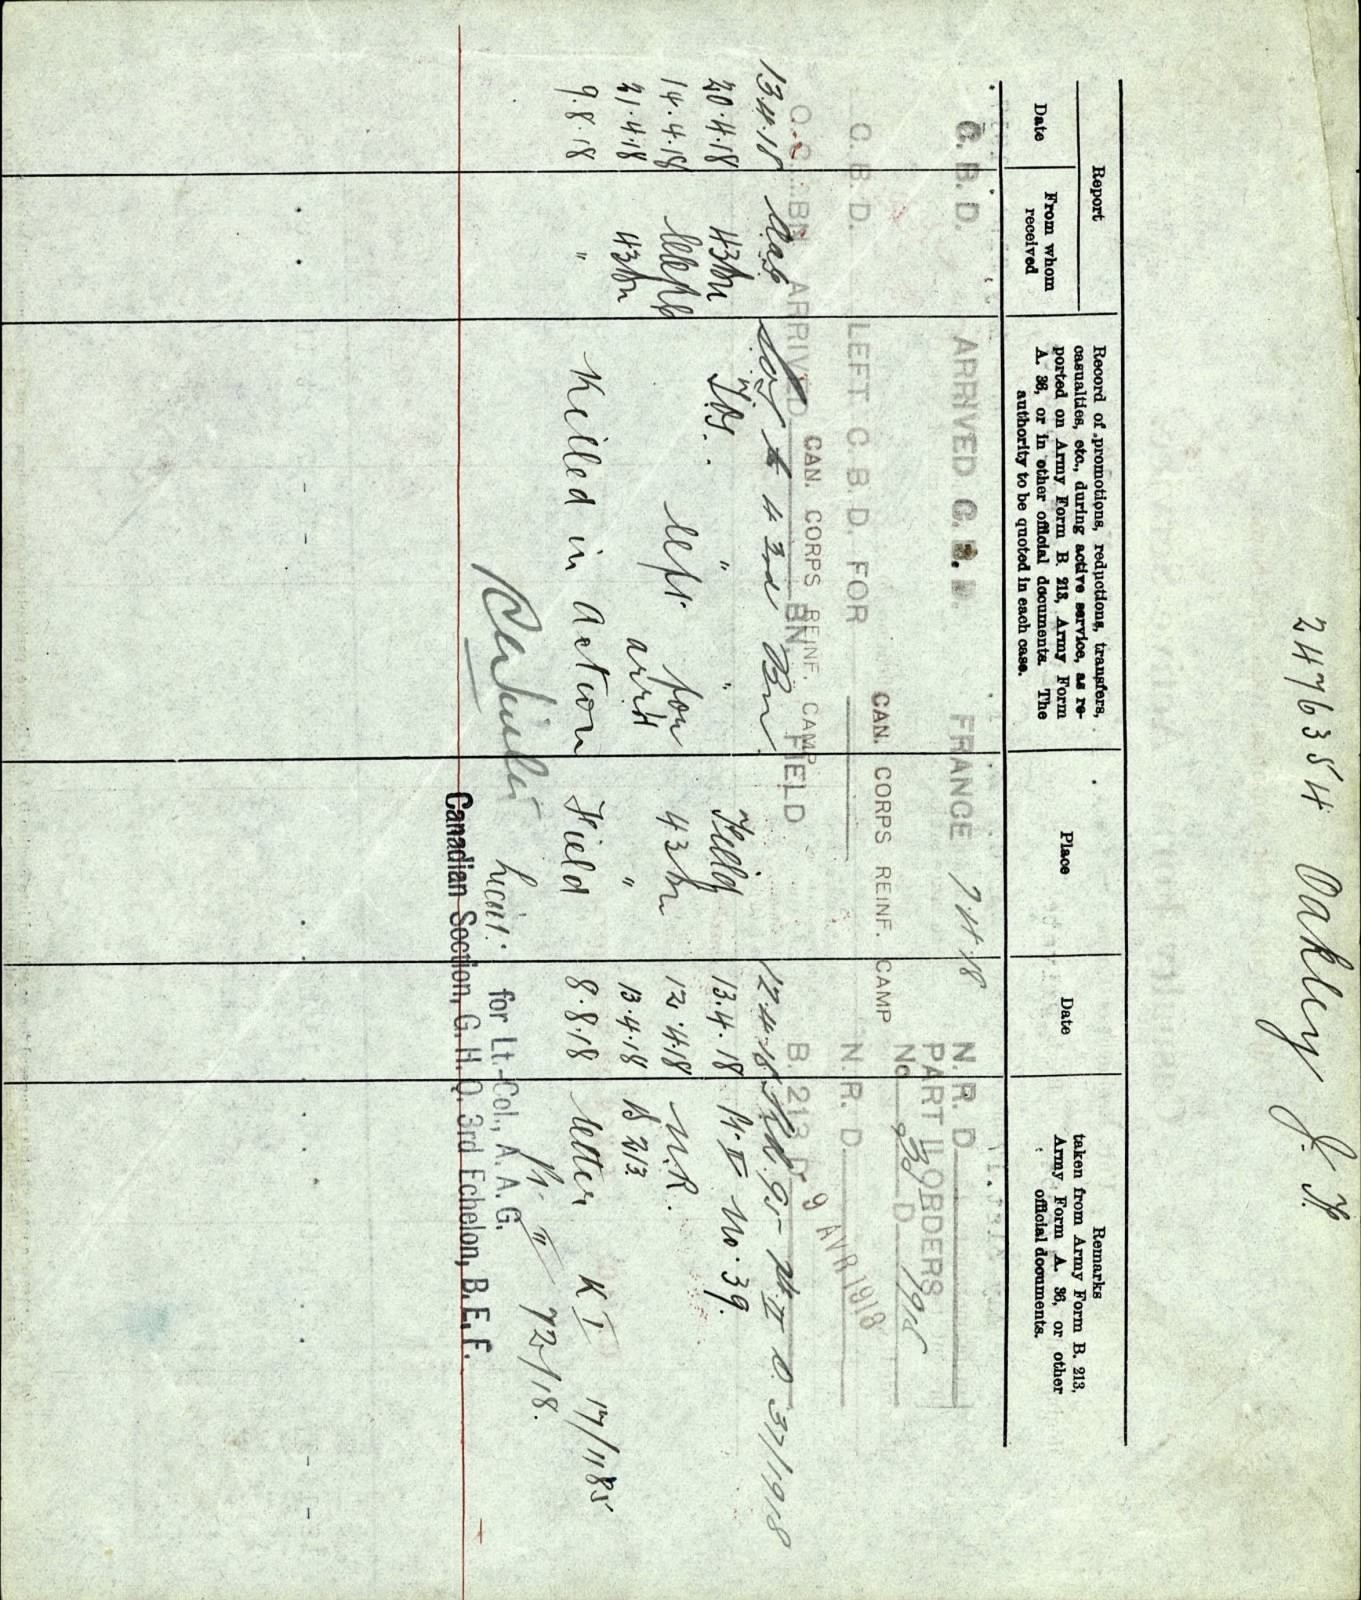 2476354 Oakley J. H.
Report
Record of promotions, reductions, transfers,
casualties, etc., during active service, as re-
ported on Army Form B. 213, Army Form
A. 36, or in other official documents. The
authority to be quoted in each case.
Place
Date
Remarks
taken from Army Form B. 213,
Army Form A. 36, or other
official documents.
Date
From whom
received
C. B. D. ARRIVED C. B. D. FRANCE 7 4 18 N. R. D
PART II ORDERS
No 33 D. 1918
CAN. CORPS REINF. CAMP
C. B. D. LEFT C. B. D. FOR N. R. D.
9 AVR 1918
CAN. CORPS REINF. CAMP
O. C. BN. ARRIVED BN. FIELD B. 213 D
13.4.18 to 43rd Bn. 12.4.18 95 Pt. II O. 37/1918
20.4.18 43 Bn T.O.S. " " Field 13.4.18 Pt. II No. 39.
14.4.18 left for 43 Bn 12.4.18 N.R.
21.4.18 43 Bn arr'd " 13.4.18 B 213
9.8.18 " Killed in Action Field 8.8.18 letter K I 17/1185
Pt. II 72/18.
Lieut. for Lt.-Col., A. A. G.
Canadian Section, G. H. Q. 3rd Echelon, B. E. F.